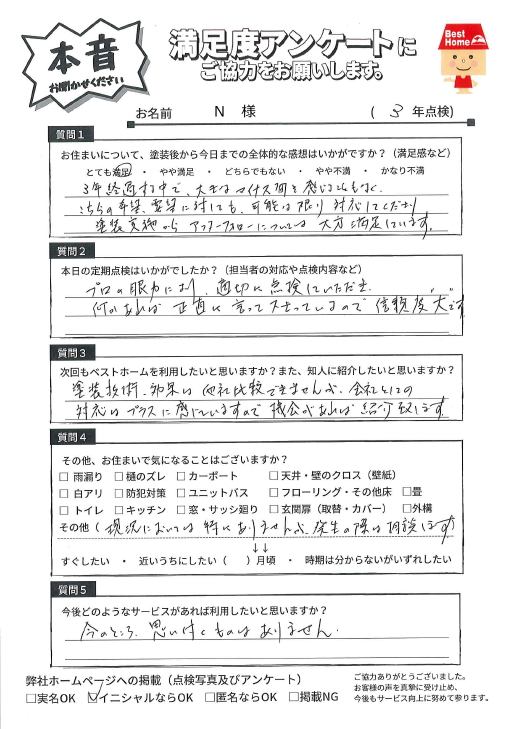 本音
お聞かせください
満足度アンケートに
ご協力をお願いします。
Best
Home
お名前 N 様 (3年点検)
質問1
お住まいについて、塗装後から今日までの全体的な感想はいかがですか？(満足感など)
とても満足 ・ やや満足 ・ どちらでもない ・ やや不満 ・ かなり不満
3年経過する中で、大きなマイナス面を感じることもなく、
こちらの希望、要望に対しても、可能な限り対応してくださり
塗装実施からアフターフォローについては大方満足しています。
質問2
本日の定期点検はいかがでしたか？(担当者の対応や点検内容など)
プロの眼力により、適切に点検していただき、
何かあれば正直に言って下さっているので信頼度"大"です
質問3
次回もベストホームを利用したいと思いますか？また、知人に紹介したいと思いますか？
塗装技術、効果は他社比較できませんが、会社としての
対応はプラスに感じていますので機会があれば紹介致します
質問4
その他、お住まいで気になることはございますか？
□ 雨漏り □ 樋のズレ □ カーポート □ 天井・壁のクロス（壁紙）
□ 白アリ □ 防犯対策 □ ユニットバス □ フローリング・その他床 □畳
□ トイレ □ キッチン □ 窓・サッシ廻り □ 玄関扉（取替・カバー） □外構
その他（現況においては特にありませんが、発生の際は相談します）
↓↓
すぐしたい ・ 近いうちにしたい（ ）月頃 ・ 時期は分からないがいずれしたい
質問5
今後どのようなサービスがあれば利用したいと思いますか？
今のところ、思い付くものはありません。
弊社ホームページへの掲載（点検写真及びアンケート）
□実名OK ☑イニシャルならOK □匿名ならOK □掲載NG
ご協力ありがとうございました。
お客様の声を真摯に受け止め、
今後もサービス向上に努めて参ります。